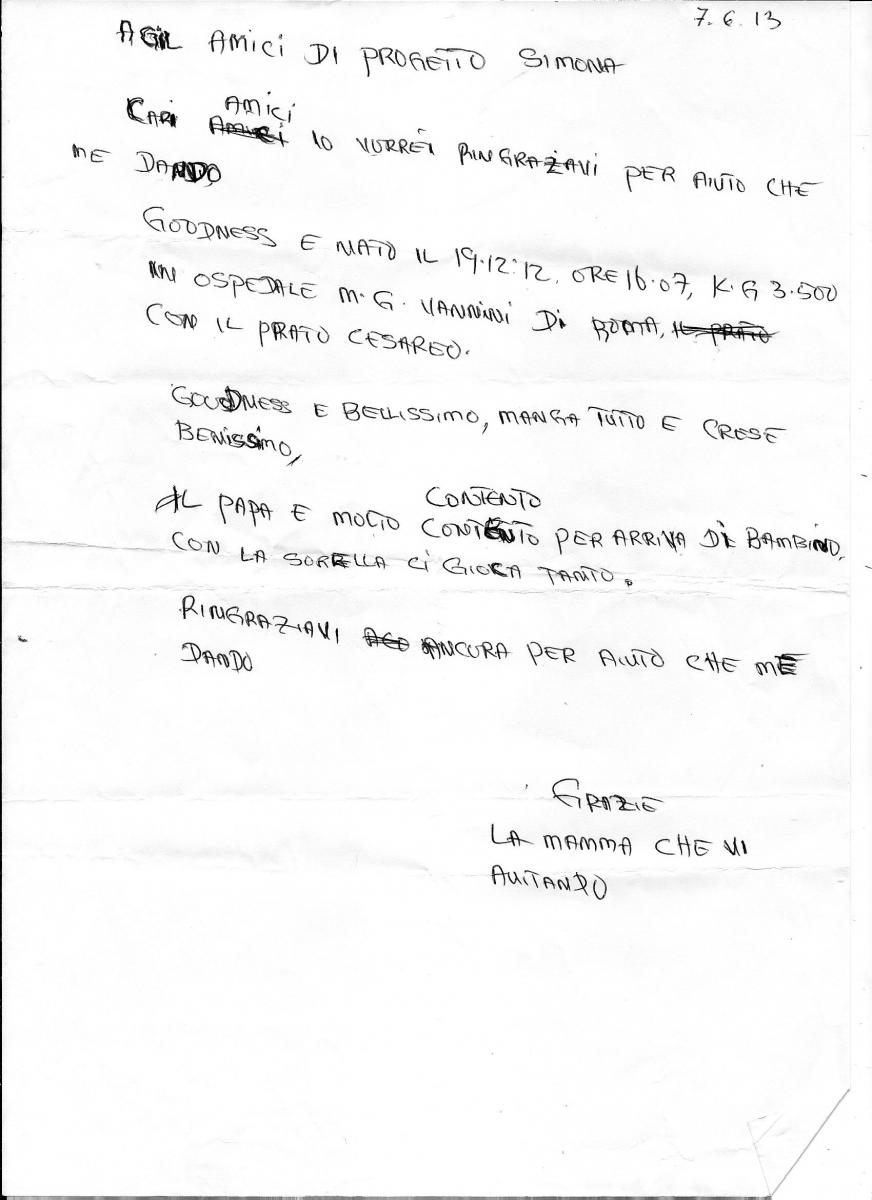 7.6.13
AGIL AMICI DI PROGETTO SIMONA
CARI AMICI IO VORREI RINGRAZAVI PER AIUTO CHE
ME DANDO
GOODNESS E NATO IL 19.12:12, ORE 16.07, K.G 3.500
IN OSPEDALE M.G. VANNINI DI ROMA, IL PRATO
CON IL PRATO CESAREO.
GOODNESS E BELLISSIMO, MANGA TUTTO E CRESE
BENISSIMO,
AL PAPA E MOLTO CONTENTO
CONTENTO PER ARRIVA DI BAMBINO,
CON LA SORELLA CI GIOCA TANTO.
RINGRAZIAVI ANCORA PER AIUTO CHE ME
DANDO
GRAZIE
LA MAMMA CHE VI
AUITANDO